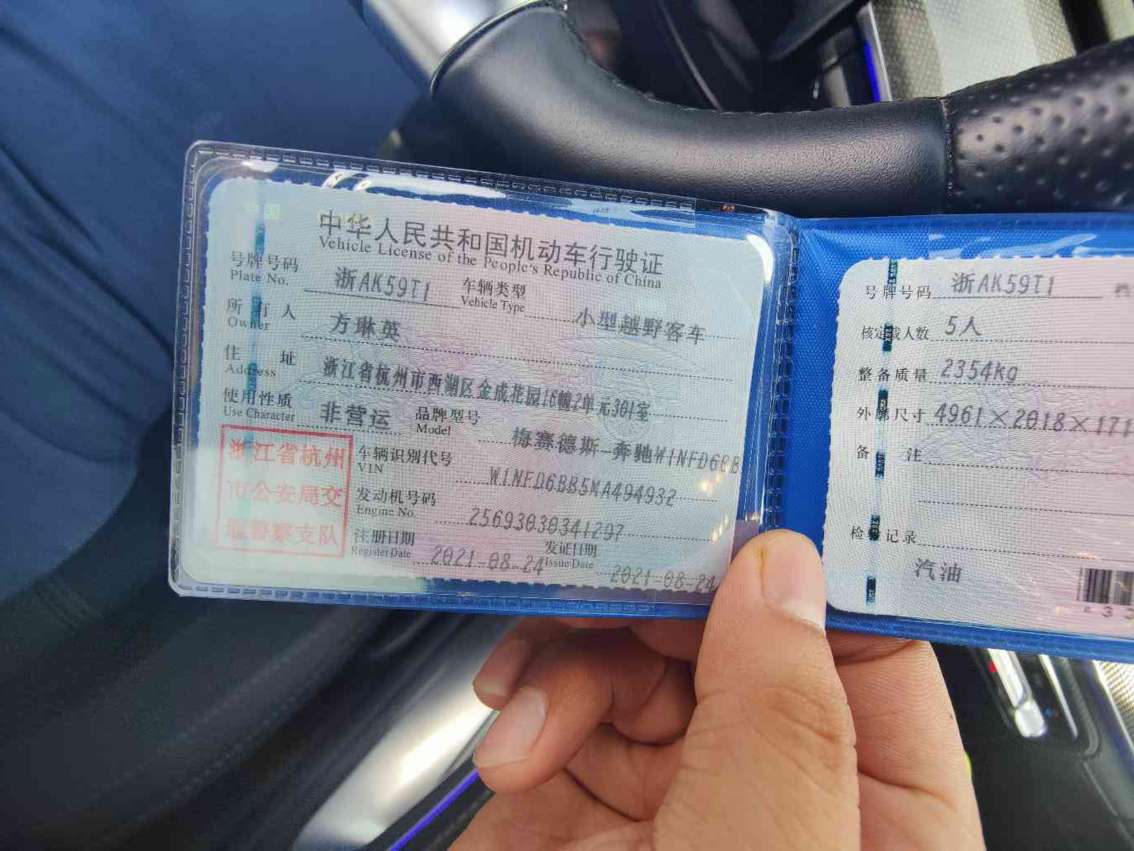 中华人民共和国机动车行驶证
Vehicle License of the People's Republic of China
号牌号码 浙AK59T1 车辆类型 小型越野客车
Plate No. Vehicle Type
所有人 方琳英
Owner
住址 浙江省杭州市西湖区金成花园16幢2单元301室
Address
使用性质 非营运 品牌型号 梅赛德斯-奔驰W1NFD6BB
Use Character Model
浙江省杭州
市公安局交
通警察支队
车辆识别代号 W1NFD6BB5MA494932
VIN
发动机号码 25693030341297
Engine No.
注册日期 2021-08-24 发证日期 2021-08-24
Register Date Issue Date
号牌号码 浙AK59T1
核定载人数 5人
整备质量 2354kg
外廓尺寸 4961×2018×171
备注
检验记录
汽油